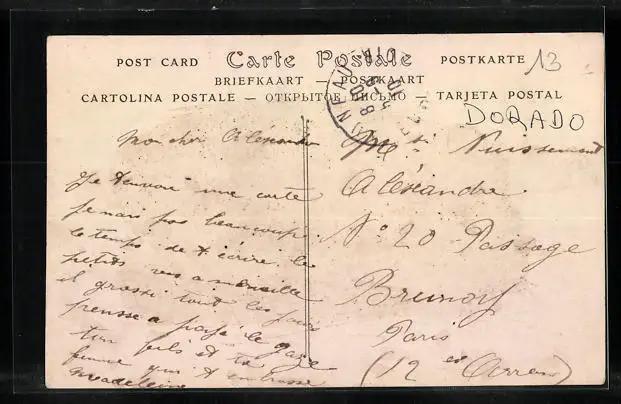 POST CARD Carte Postale POSTKARTE 13
BRIEFKAART — POSTKAART
CARTOLINA POSTALE — ОТКРЫТОЕ ПИСЬМО — TARJETA POSTAL
DORADO
Mon cher Aléxandre
Je t'envoie une carte
je nais pas beaucoup
le temps de t ecrire le
petits vas a merveille
il grossi tout les jours
pensse a payé le gaze
ton fils et ta
femme qui t embrasse
Madeleine
Mr Nuissement
Aléxandre
N° 20 Passage
Brunoy
Paris
(12 e Arron)